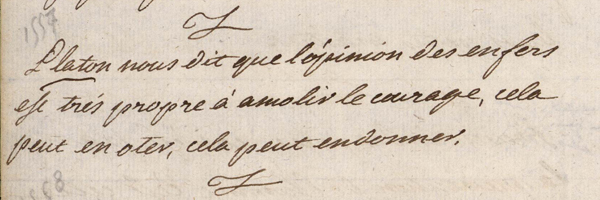 1557
Platon nous dit que l'opinion des enfers
est trés propre á amolir le courage, cela
peut en oter, cela peut en donner.
1558